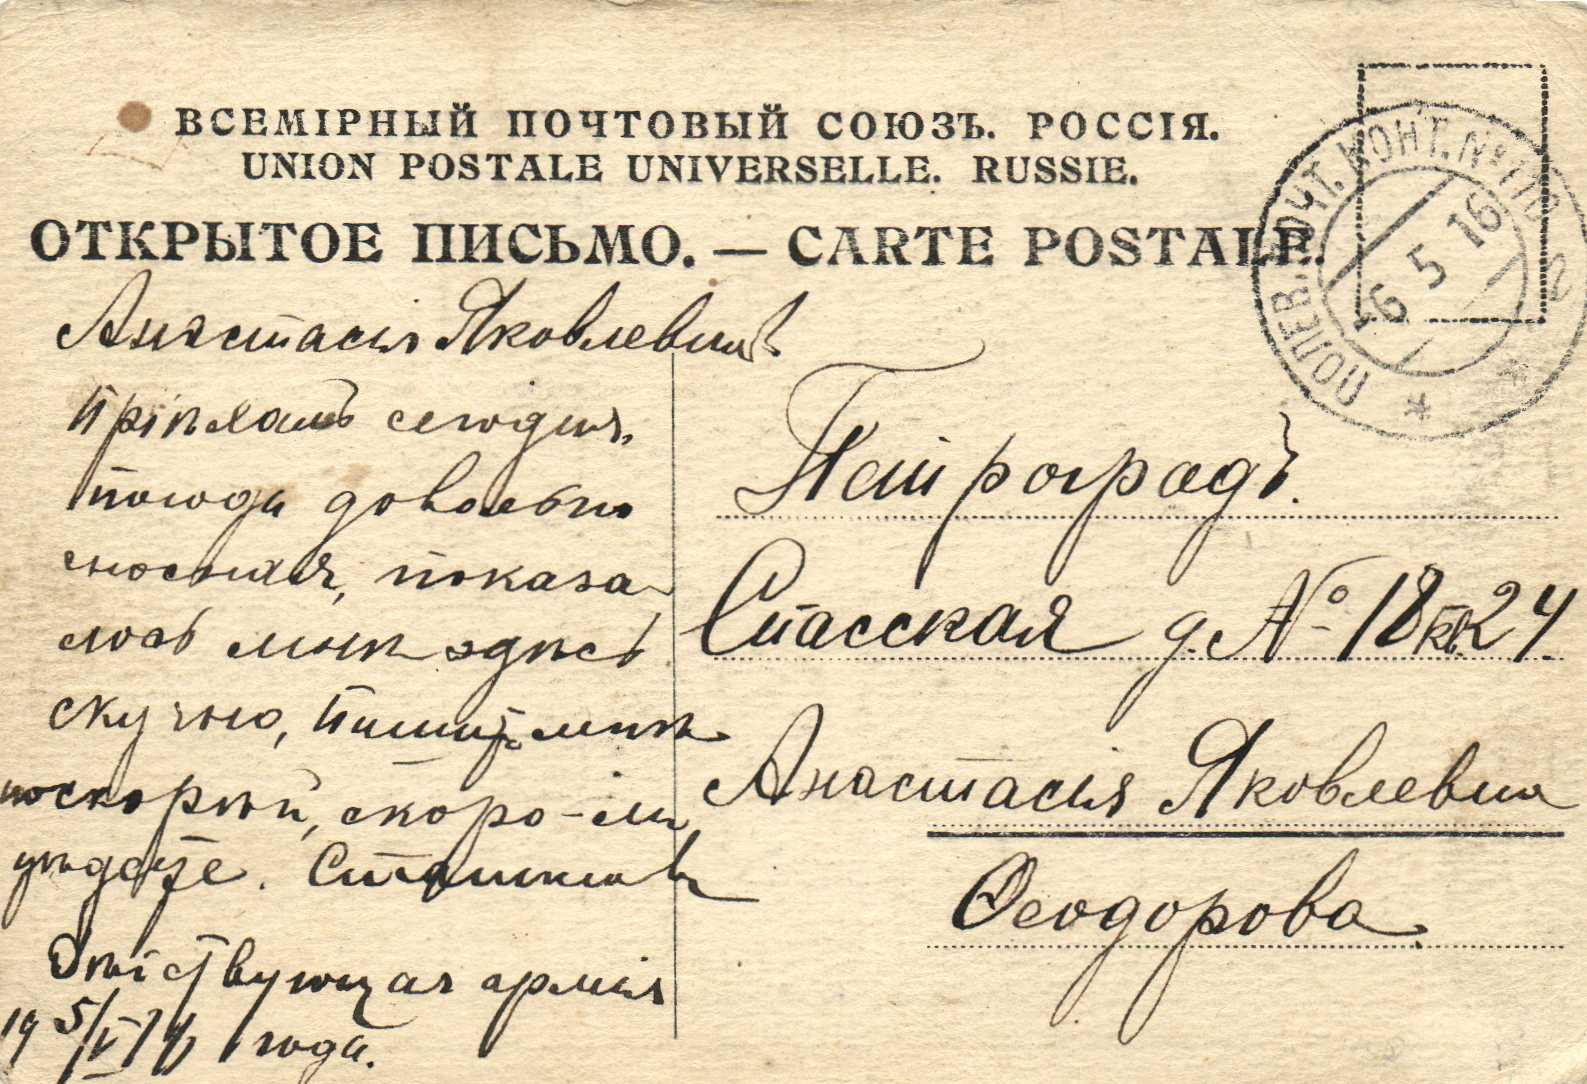 ВСЕМІРНЫЙ ПОЧТОВЫЙ СОЮЗЪ. РОССІЯ.
UNION POSTALE UNIVERSELLE. RUSSIE.
ОТКРЫТОЕ ПИСЬМО. — CARTE POSTALE.
ПОЛЕВ. ПОЧТ. КОНТ. №
6 5 16
Анастасія Яковлевна
Пріѣхалъ сегодня,
погода довольно
сносная, показа-
лось мнѣ здѣсь
скучно, пишите мнѣ
поскорѣй, скоро-ли
уѣдете.
Дѣйствующая армія
19 5/V 16 года.
Петроградъ.
Спасская д. № 18 кв. 24.
Анастасія Яковлевна
Ѳеодорова.